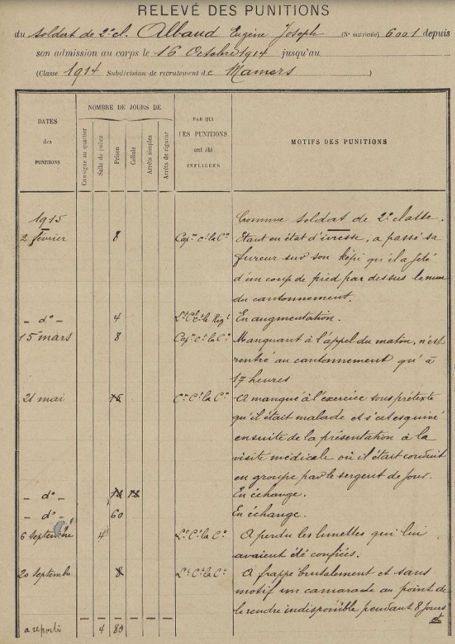 RELEVÉ DES PUNITIONS
du soldat de 2e cl. Albaud Eugène Joseph (No MATRICULE) 6001 depuis
son admission au corps le 16 Octobre 1914 jusqu'au
(Classe 1914 Subdivision de recrutement de Mamers )
DATES des PUNITIONS
NOMBRE DE JOURS DE
Consigne au quartier
Salle de police
Prison
Cellule
Arrêts simples
Arrêts de rigueur
PAR QUI LES PUNITIONS ont été INFLIGÉES
MOTIFS DES PUNITIONS
1915 Comme soldat de 2e classe.
2 février 8 Capne Ct la Cie Etant en état d'ivresse, a passé sa
fureur sur son képi qu'il a jeté
d'un coup de pied par dessus le mur
du cantonnement.
- do - 4 Lt Cl Ct le Régt En augmentation.
15 mars 8 Capne Ct la Cie Manquant à l'appel du matin, n'est
rentré au cantonnement qu'à
17 heures
21 mai 15 Ct la Cie A manqué à l'exercice sous prétexte
qu'il était malade et s'est esquivé
ensuite de la présentation à la
visite médicale où il était conduit
en groupe par le sergent de jour.
- do - En échange.
- do - 60 En échange.
6 septembre 4 Lt Ct la Cie A perdu les lunettes qui lui
avaient été confiées.
20 septembre 8 Lt Ct la Cie A frappé brutalement et sans
motif un camarade au point de
le rendre indisponible pendant 8 jours
a reporter 4